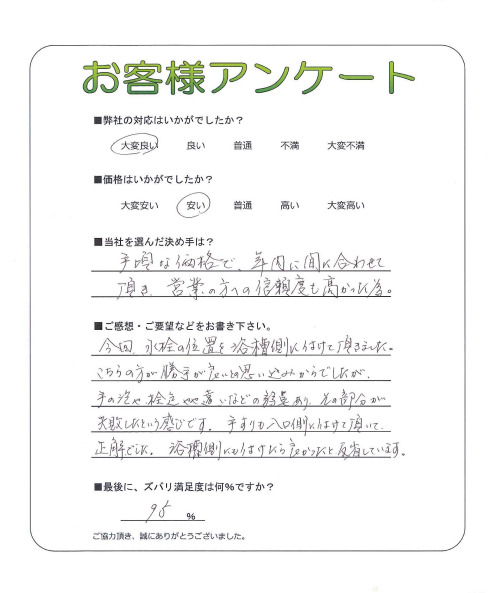 お客様アンケート
■弊社の対応はいかがでしたか？
大変良い 良い 普通 不満 大変不満
■価格はいかがでしたか？
大変安い 安い 普通 高い 大変高い
■当社を選んだ決め手は？
手頃な価格で、年内に間に合わせて
頂き、営業の方への信頼度も高かった為。
■ご感想・ご要望などをお書き下さい。
今回、水栓の位置を浴槽側に付けて頂きました。
こちらの方が勝手が良いとの思い込みからでしたが、
手の泡や栓 など あり、その部分が
失敗したという感じです。手すりも入口側に付けて頂いて、
正解でした。浴槽側にも付けたら良かったと反省しています。
■最後に、ズバリ満足度は何％ですか？
95 ％
ご協力頂き、誠にありがとうございました。